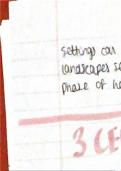 settings can
landscapes so
phase of he
3 CE